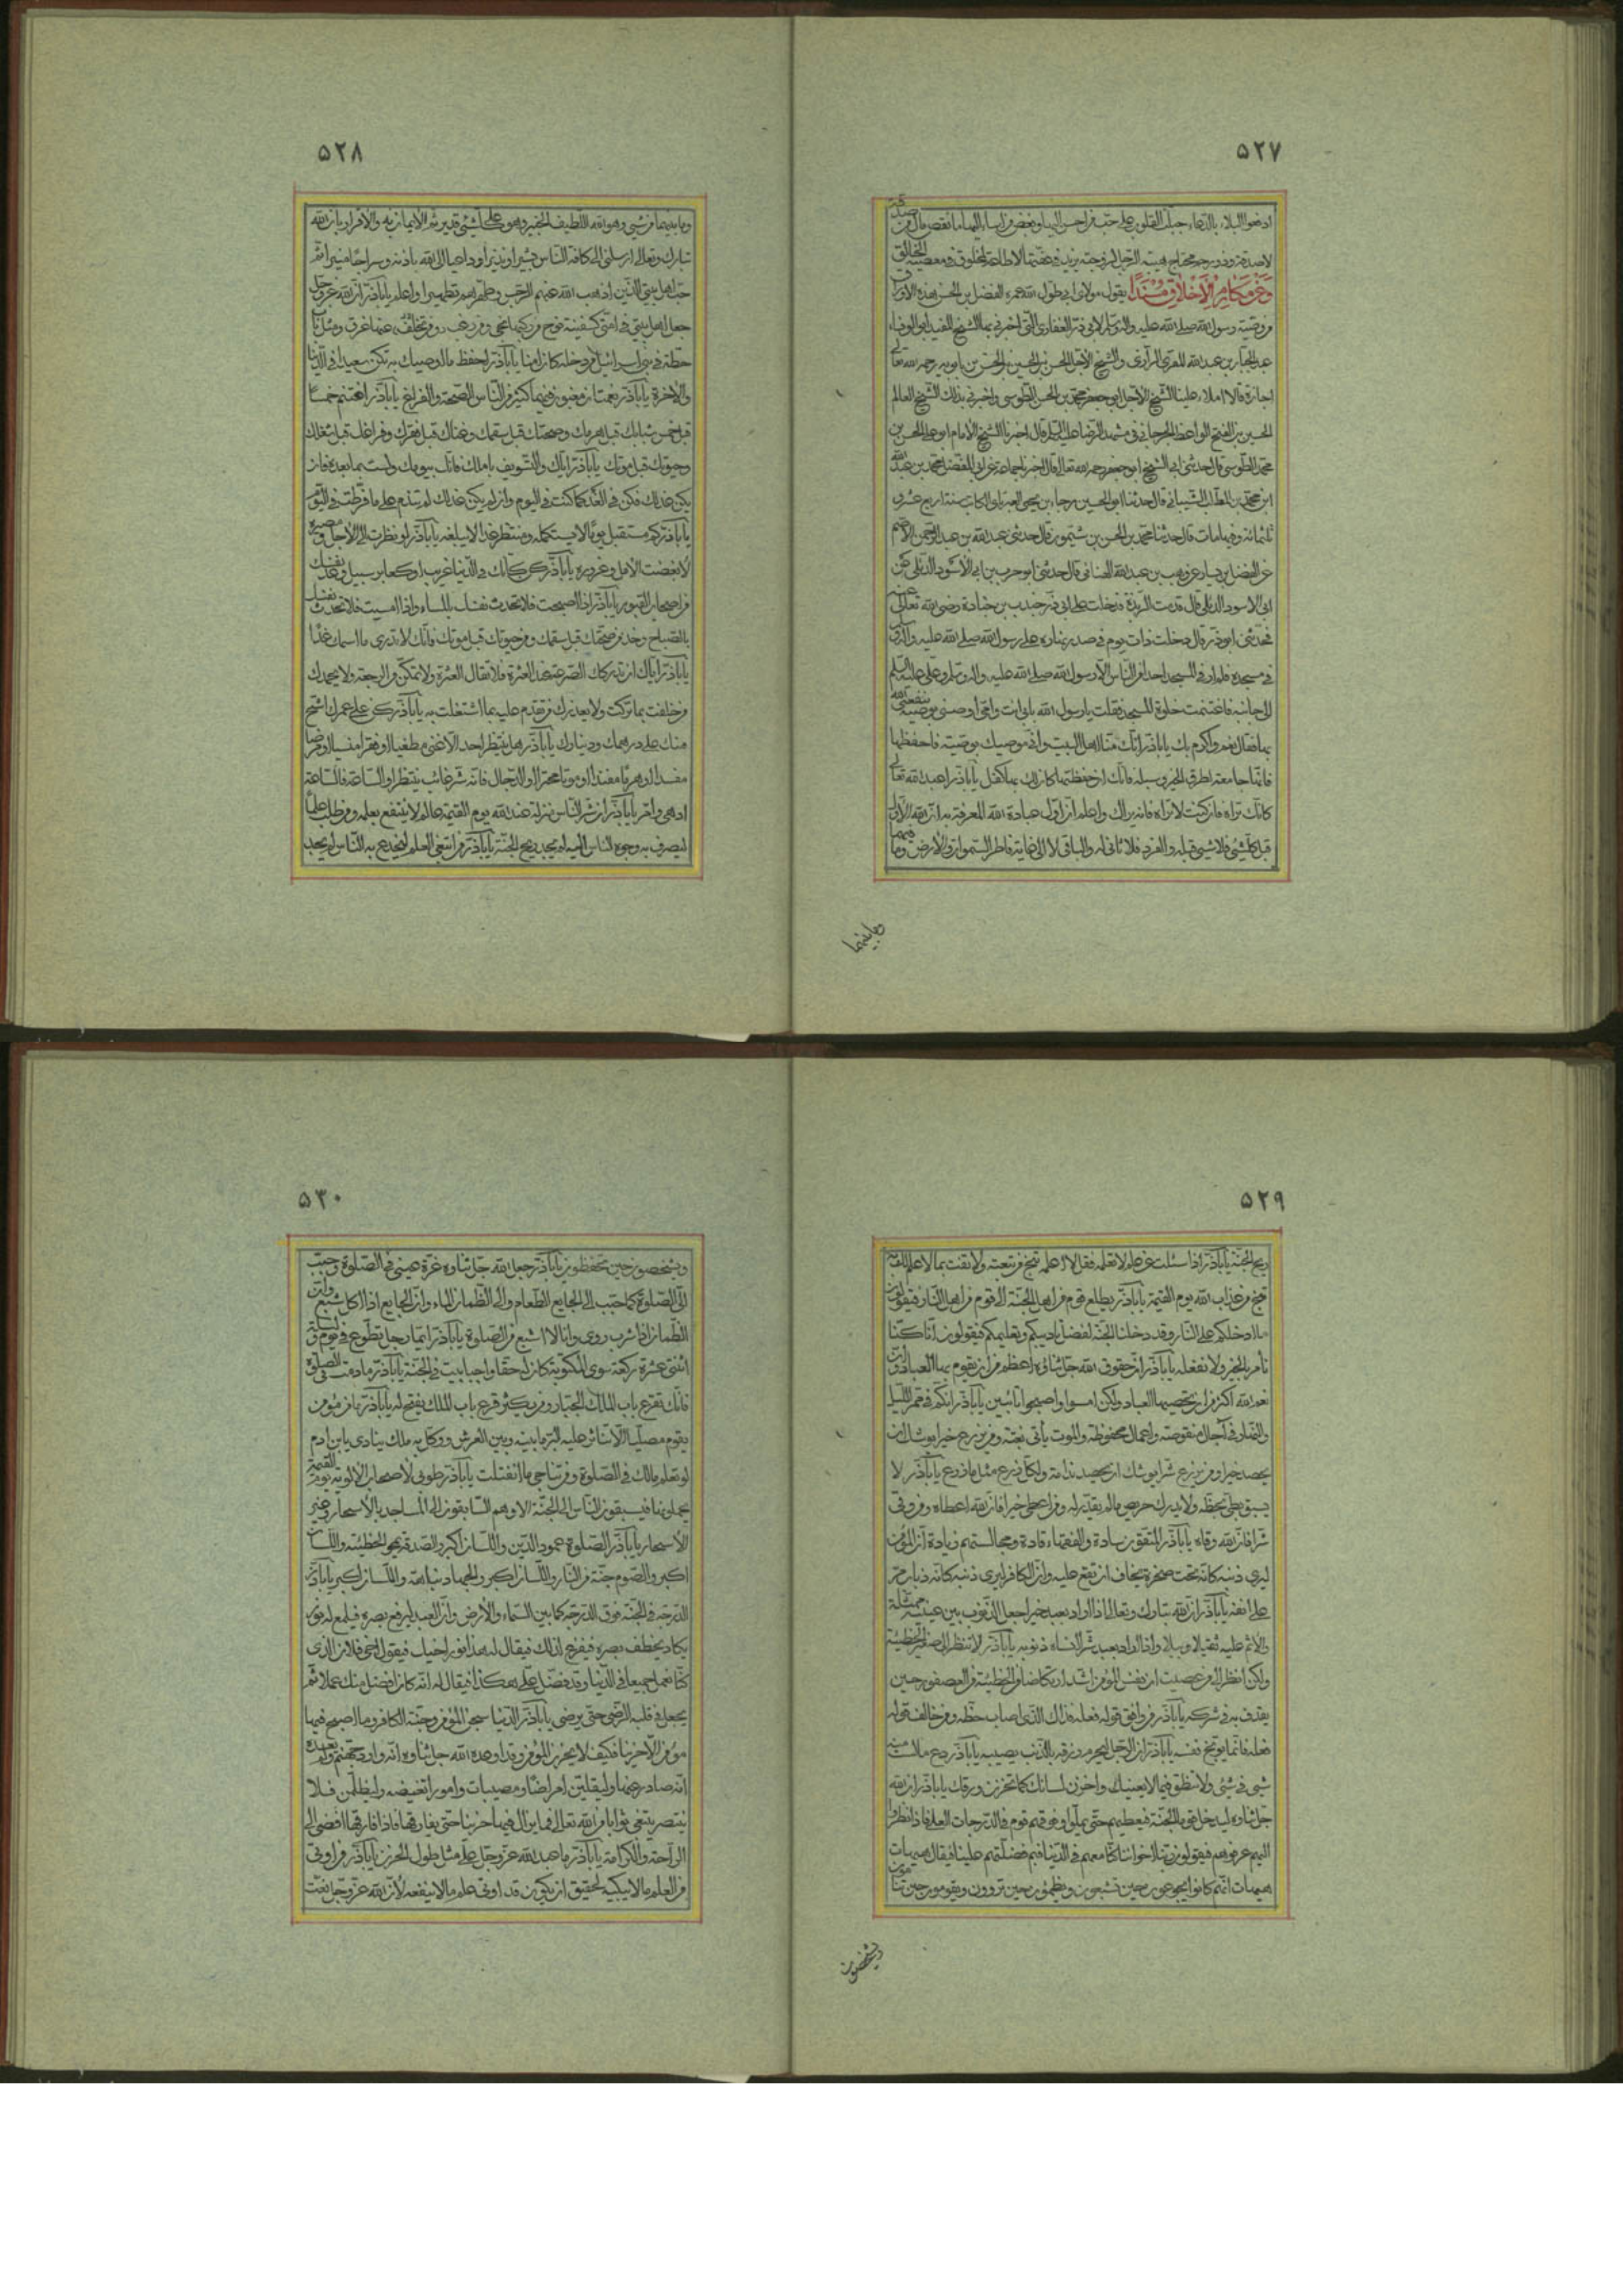 ۵۲۷
ادفعوا البلاء بالدعاء جبلت القلوب على حب من احسن اليها وبغض من اساء اليها ما نقص مال من صدقة
لا صدقة وذو رحم محتاج هيبة الرجل لزوجته يزيد في عفتها لا طاعة لمخلوق في معصية الخالق
وَعَن مَكارِمِ الْاَخْلاقِ مُسْنَدًا يقول مولاي ابي طول الله عمره الفضل بن الحسن هذه الاوراق
من وصية رسول الله صلى الله عليه واله وسلم لابي ذر الغفاري التي اخبرني بها الشيخ المفيد ابو الوفاء
عبد الجبار بن عبد الله المقري الرازي والشيخ الاجل الحسن بن الحسين بن الحسن بن بابويه رحمه الله تعالى
اجازة قالا املاء علينا الشيخ الاجل ابو جعفر محمد بن الحسن الطوسي واخبرني بذلك الشيخ العالم
الحسين بن الفتح الواعظ الجرجاني في مشهد الرضا عليه السلام قال اخبرنا الشيخ الامام ابو علي الحسن بن
محمد الطوسي قال حدثني ابي الشيخ ابو جعفر رحمه الله تعالى قال اخبرنا جماعة عن ابي المفضل محمد بن عبد الله
ابن محمد بن المطلب الشيباني قال حدثنا ابو الحسين رجاء بن يحيى العبرتاي الكاتب سنة اربع عشرة
ثلثمائة وفيها مات قال حدثنا محمد بن الحسن بن شمون قال حدثني عبد الله بن عبد الرحمن الاصم
عن الفضيل بن يسار عن وهب بن عبد الله الهنائي قال حدثني ابو حرب بن ابي الاسود الدئلي عن
ابي الاسود الدئلي قال قدمت الربذة فدخلت على ابي ذر جندب بن جنادة رضي الله تعالى عنه
فحدثني ابو ذر قال دخلت ذات يوم في صدر نهاره على رسول الله صلى الله عليه واله
في مسجده فلم ار في المسجد احدا من الناس الا رسول الله صلى الله عليه واله وسلم وعلي عليه السلم
الى جانبه فاغتنمت خلوة المسجد فقلت يا رسول الله بابي انت وامي اوصني بوصية ينفعني الله
بها فقال نعم واكرم بك يا اباذر انك منا اهل البيت واني موصيك بوصية فاحفظها
فانها جامعة لطرق الخير وسبله فانك ان حفظتها كان لك بها كفل يا اباذر اعبد الله تعالى
كانك تراه فان كنت لا تراه فانه يراك واعلم ان اول عبادة الله المعرفة به انه الاول
قبل كل شيئ فلا شيئ قبله والفرد فلا ثاني له والباقي لا الى غاية فاطر السموات والارض وما فيهما
وما بينهما
۵۲۸
وما بينهما من شيئ وهو الله اللطيف الخبير وهو على كل شيئ قدير ثم الايمان بي والاقرار بان الله
تبارك وتعالى ارسلني الى كافة الناس بشيرا ونذيرا وداعيا الى الله باذنه وسراجا منيرا ثم
حب اهل بيتي الذين اذهب الله عنهم الرجس وطهرهم تطهيرا واعلم يا اباذر ان الله عز وجل
جعل اهل بيتي في امتي كسفينة نوح من ركبها نجى ومن رغب عنها غرق ومثل باب
حطة في بني اسرائيل من دخله كان امنا يا اباذر احفظ ما اوصيك به تكن سعيدا في الدنيا
والاخرة يا اباذر نعمتان مغبون فيهما كثير من الناس الصحة والفراغ يا اباذر اغتنم خمسا
قبل خمس شبابك قبل هرمك وصحتك قبل سقمك وغناك قبل فقرك وفراغك قبل شغلك
وحيوتك قبل موتك يا اباذر اياك والتسويف باملك فانك بيومك ولست بما بعده فان
يكن غد لك فكن في الغد كما كنت في اليوم وان لم يكن غد لك لم تندم على ما فرطت في اليوم
يا اباذر كم مستقبل يوما لا يستكمله ومنتظر غدا لا يبلغه يا اباذر لو نظرت الى الاجل ومصيره
لابغضت الامل وغروره يا اباذر كن كانك في الدنيا غريب او كعابر سبيل وعد نفسك
من اصحاب القبور يا اباذر اذا اصبحت فلا تحدث نفسك بالمساء واذا امسيت فلا تحدث نفسك
بالصباح وخذ من صحتك قبل سقمك ومن حيوتك قبل موتك فانك لا تدري ما اسمك غدا
يا اباذر اياك ان تدركك الصرعة عند العثرة فلا تقال العثرة ولا تمكن من الرجعة ولا يحمدك
من خلفت بما تركت ولا يعذرك من تقدم عليه بما اشتغلت به يا اباذر كن على عمرك اشح
منك على درهمك ودينارك يا اباذر هل ينتظر احد الا غنى مطغيا او فقرا منسيا او مرضا
مفسدا او هرما مفندا او موتا محترا او الدجال فانه شر غائب ينتظر او الساعة فالساعة
ادهى وامر يا اباذر ان شر الناس منزلة عند الله يوم القيمة عالم لا ينتفع بعلمه ومن طلب علما
ليصرف به وجوه الناس اليه لم يجد ريح الجنة يا اباذر من ابتغى العلم ليخدع به الناس لم يجد
۵۲۹
ريح الجنة يا اباذر اذا سئلت عن علم لا تعلمه فقل لا اعلمه تنج من تبعته ولا تفت بما لا علم لك به
تنج من عذاب الله يوم القيمة يا اباذر يطلع قوم من اهل الجنة الى قوم من اهل النار فيقولون
ما ادخلكم على النار وقد دخلنا الجنة لفضل تاديبكم وتعليمكم فيقولون انا كنا
نامر بالخير ولا نفعله يا اباذر ان حقوق الله جل ثناؤه اعظم من ان يقوم بها العباد وان
نعم الله اكثر من ان يحصيها العباد ولكن امسوا واصبحوا تائبين يا اباذر انكم في ممر الليل
والنهار في آجال منقوصة واعمال محفوظة والموت يأتي بغتة ومن يزرع خيرا يوشك ان
يحصد خيرا ومن يزرع شرا يوشك ان يحصد ندامة ولكل زارع مثل ما زرع يا اباذر لا
يسبق بطيئ بحظه ولا يدرك حريص ما لم يقدر له ومن اعطي خيرا فان الله اعطاه ومن وقي
شرا فان الله وقاه يا اباذر المتقون سادة والفقهاء قادة ومجالستهم زيادة ان المؤمن
ليرى ذنبه كانه تحت صخرة يخاف ان تقع عليه وان الكافر ليرى ذنبه كانه ذباب مر
على انفه يا اباذر ان الله تبارك وتعالى اذا اراد بعبد خيرا جعل الذنوب بين عينيه ممثلة
والاثم عليه ثقيلا وبيلا واذا اراد بعبد شرا انساه ذنوبه يا اباذر لا تنظر الى صغر الخطيئة
ولكن انظر الى من عصيت ان نفس المؤمن اشد ارتكاضا من الخطيئة من العصفور حين
يقذف به في شركه يا اباذر من وافق قوله فعله فذاك الذي اصاب حظه ومن خالف قوله
فعله فانما يوبخ نفسه يا اباذر ان الرجل ليحرم رزقه بالذنب يصيبه يا اباذر دع ما لست منه
في شيئ ولا تنطق فيما لا يعنيك واخزن لسانك كما تخزن ورقك يا اباذر ان الله
جل ثناؤه ليدخل قوما الجنة فيعطيهم حتى يملوا وفوقهم قوم في الدرجات العلى فاذا نظروا
اليهم عرفوهم فيقولون ربنا اخواننا كنا معهم في الدنيا فبم فضلتهم علينا فيقال هيهات
هيهات انهم كانوا يجوعون حين تشبعون ويظمؤن حين تروون ويقومون حين تنامون
ويشخصون
۵۳۰
ويشخصون حين تحفظون يا اباذر جعل الله جل ثناؤه قرة عيني في الصلوة وحبب
الي الصلوة كما حبب الى الجايع الطعام والى الظمان الماء وان الجايع اذا اكل شبع وان
الظمان اذا شرب روى وانا لا اشبع من الصلوة يا اباذر ايما رجل تطوع في يوم وليلة
اثنتي عشرة ركعة سوى المكتوبة كان له حقا واجبا بيت في الجنة يا اباذر ما دمت في الصلوة
فانك تقرع باب الملك الجبار ومن يكثر قرع باب الملك يفتح له يا اباذر ما من مؤمن
يقوم مصليا الا تناثر عليه البر ما بينه وبين العرش ووكل به ملك ينادي يا ابن ادم
لو تعلم ما لك في الصلوة ومن تناجي ما انفتلت يا اباذر طوبى لاصحاب الالوية يوم القيمة
يحملونها فيسبقون الناس الى الجنة الا وهم السابقون الى المساجد بالاسحار وغير
الاسحار يا اباذر الصلوة عمود الدين واللسان اكبر والصدقة تمحو الخطيئة واللسان
اكبر والصوم جنة من النار واللسان اكبر والجهاد نباهة واللسان اكبر يا اباذر
الدرجة في الجنة فوق الدرجة كما بين السماء والارض وان العبد ليرفع بصره فيلمع له نور
يكاد يخطف بصره فيفزع لذلك فيقال له هذا نور اخيك فيقول اخي فلان الذي
كنا نعمل جميعا في الدنيا وقد فضل علي هكذا فيقال له انه كان افضل منك عملا ثم
يجعل في قلبه الرضى حتى يرضى يا اباذر الدنيا سجن المؤمن وجنة الكافر وما اصبح فيها
مؤمن الا حزينا فكيف لا يحزن المؤمن وقد اوعده الله جل ثناؤه انه وارد جهنم ولم يعده
انه صادر عنها وليلقين امراضا ومصيبات وامورا تغيضه وليظلمن فلا
ينتصر يبتغي ثوابا من الله تعالى فما يزال فيها حزينا حتى يفارقها فاذا فارقها افضى الى
الراحة والكرامة يا اباذر ما عبد الله عز وجل على مثل طول الحزن يا اباذر من اوتي
من العلم ما لا يبكيه لحقيق ان يكون قد اوتي علم ما لا ينفعه لان الله عز وجل نعت